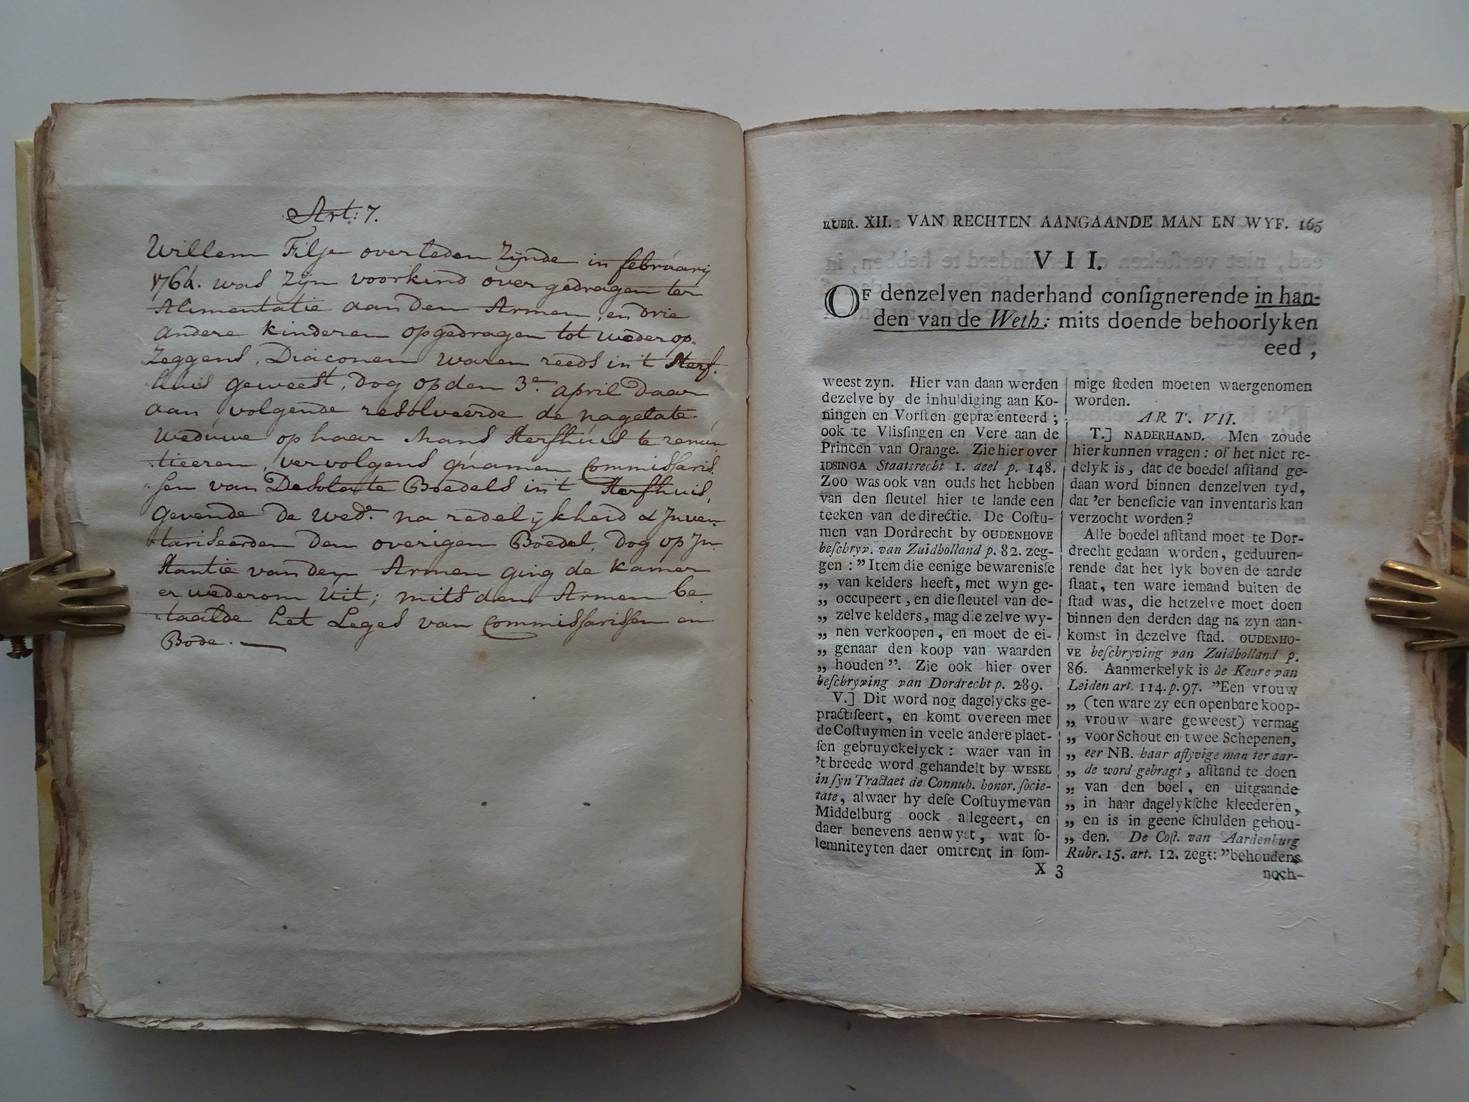 Art: 7.
Willem Filje overleden Zijnde in februarij
1764. was Zijn voorkind overgedragen ter
Alimentatie aan den Armen, en drie
andere kinderen opgedragen tot wederop-
Zeggens, Diaconen waren reeds in 't Sterf-
huis geweest, dog op den 3e april daar
aan volgende resolveerde de nagelate
Weduwe op haar Mans Sterfhuis te renun
tieeren, vervolgens quamen Commissaris
sen van Desolate Boedels in 't Sterfhuis,
Gevende de wede. na redelijkheid & Inven
tariseerden den overigen Boedel, dog op In-
stantie van den Armen ging de kamer
er wederom uit; mits den Armen be-
taalde het Leges van Commissarissen en
Bode.
RUBR. XII. VAN RECHTEN AANGAANDE MAN EN WYF. 165
VII.
OF denzelven naderhand consignerende in han-
den van de Weth: mits doende behoorlyken
eed,
weest zyn. Hier van daan werden
dezelve by de inhuldiging aan Ko-
ningen en Vorsten gepræsenteerd;
ook te Vlissingen en Vere aan de
Princen van Orange. Zie hier over
IDSINGA Staatsrecht I. deel p. 148.
Zoo was ook van ouds het hebben
van den sleutel hier te lande een
teeken van de directie. De Costu-
men van Dordrecht by OUDENHOVE
beschryv. van Zuidholland p. 82. zeg-
gen: "Item die eenige bewarenisse
„ van kelders heeft, met wyn ge-
„ occupeert, en die sleutel van de-
„ zelve kelders, mag die zelve wy-
„ nen verkoopen, en moet de ei-
„ genaar den koop van waarden
„ houden". Zie ook hier over
beschryving van Dordrecht p. 289.
V.] Dit word nog dagelycks ge-
practiseert, en komt overeen met
de Costuymen in veele andere plaet-
sen gebruyckelyck: waer van in
't breede word gehandelt by WESEL
in syn Tractaet de Connub. bonor. socie-
tate, alwaer hy dese Costuyme van
Middelburg oock allegeert, en
daer benevens aenwyst, wat so-
lemniteyten daer omtrent in som-
mige steden moeten waergenomen
worden.
ART. VII.
T.] NADERHAND. Men zoude
hier kunnen vragen: of het niet re-
delyk is, dat de boedel afstand ge-
daan word binnen denzelven tyd,
dat 'er beneficie van inventaris kan
verzocht worden?
Alle boedel afstand moet te Dor-
drecht gedaan worden, geduuren-
rende dat het lyk boven de aarde
staat, ten ware iemand buiten de
stad was, die hetzelve moet doen
binnen den derden dag na zyn aan-
komst in dezelve stad. OUDENHO-
VE beschryving van Zuidholland p.
86. Aanmerkelyk is de Keure van
Leiden art. 114. p. 97. "Een vrouw
„ (ten ware zy een openbare koop-
„ vrouw ware geweest) vermag
„ voor Schout en twee Schepenen,
„ eer NB. haar aflyvige man ter aar-
„ de word gebragt, afstand te doen
„ van den boel, en uitgaande
„ in haar dagelyksche kleederen,
„ en is in geene schulden gehou-
„ den. De Cost. van Aardenburg
Rubr. 15. art. 12. zegt: "behoudens
X 3
noch-